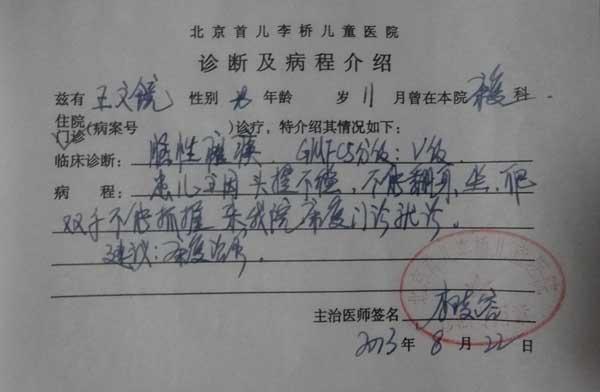 北京首儿李桥儿童医院
诊断及病程介绍
兹有 王文镜 性别 男 年龄 岁 11 月曾在本院 康复 科.
住院
门诊 (病案号 )诊疗，特介绍其情况如下：
临床诊断： 脑性瘫痪 GMFCS分级：V级
病 程： 患儿主因头竖不稳、不能翻身、坐、爬
双手不能抓握 来我院康复门诊就诊。
建议：康复治疗。
主治医师签名
2013 年 8 月 22 日